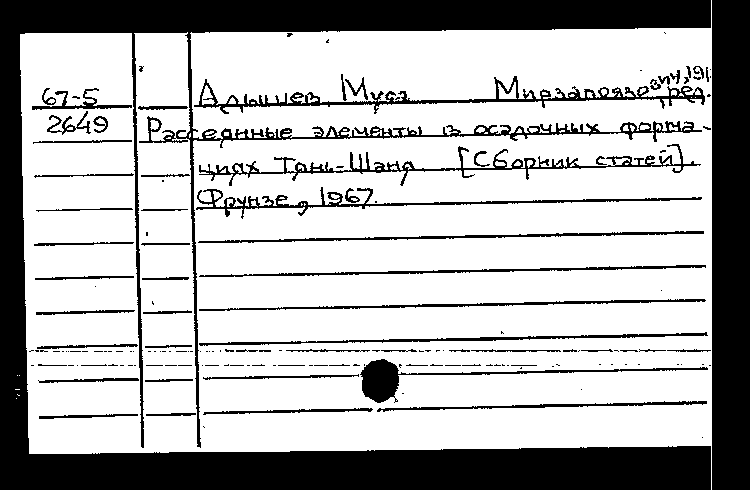 67-5
2649
Адышев, Муса Мирзапоязович, 191
ред.
Рассеянные элементы в осадочных форма-
циях Тянь-Шаня. [Сборник статей].
Фрунзе, 1967.